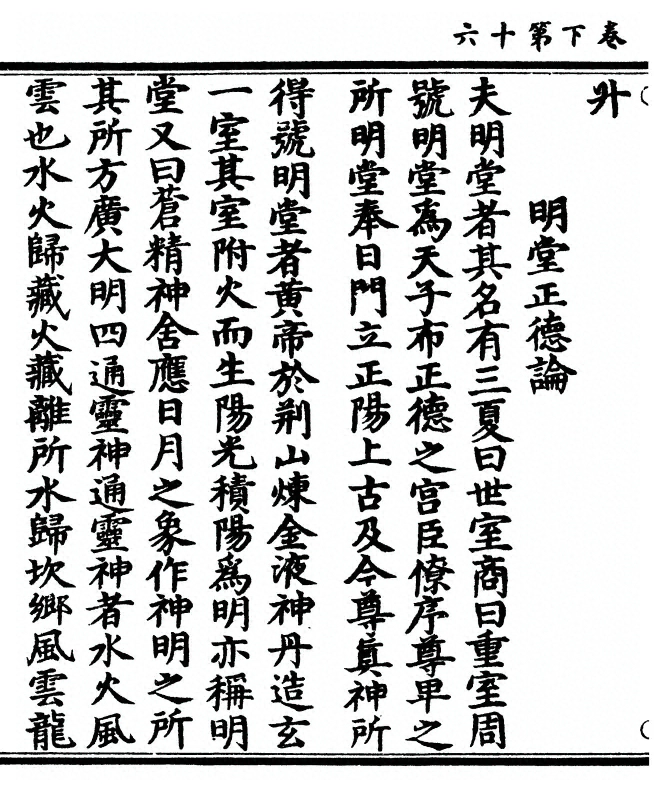 卷下第十六
升
明堂正德論
夫明堂者其名有三夏曰世室商曰重室周
號明堂爲天子布正德之宮臣僚序尊卑之
所明堂奉日門立正陽上古及今尊眞神所
得號明堂者黄帝於荆山煉金液神丹造玄
一室其室附火而生陽光積陽爲明亦稱明
堂又曰蒼精神舍應日月之象作神明之所
其所方廣大明四通靈神通靈神者水火風
雲也水火歸藏火藏離所水歸坎鄉風雲龍